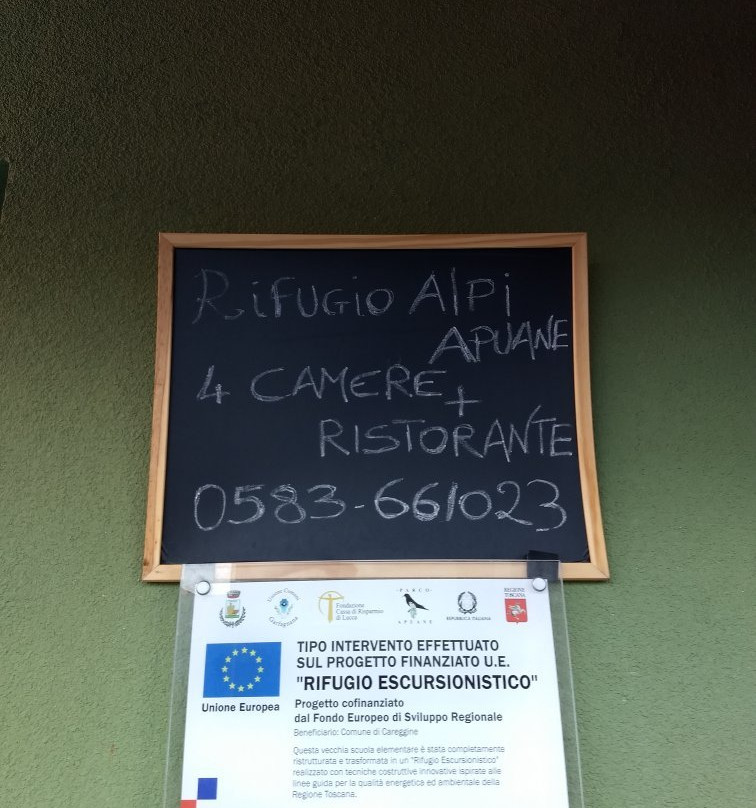 Rifugio Alpi
APUANE
4 CAMERE
+
RISTORANTE
0583-661023
Unione Comuni
Garfagnana
Fondazione
Cassa di Risparmio
di Lucca
PARCO
APUANE
REPUBBLICA ITALIANA
REGIONE
TOSCANA
Unione Europea
TIPO INTERVENTO EFFETTUATO
SUL PROGETTO FINANZIATO U.E.
"RIFUGIO ESCURSIONISTICO"
Progetto cofinanziato
dal Fondo Europeo di Sviluppo Regionale
Beneficiario: Comune di Careggine
Questa vecchia scuola elementare è stata completamente
ristrutturata e trasformata in un "Rifugio Escursionistico"
realizzato con tecniche costruttive innovative ispirate alle
linee guida per la qualità energetica ed ambientale della
Regione Toscana.